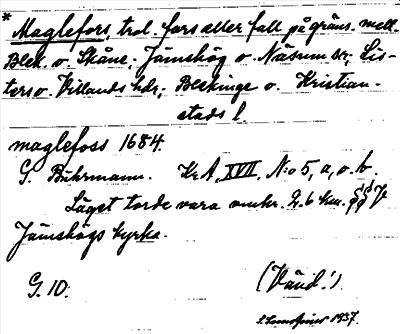 * Maglefors, trol. fors eller fall på gräns. mell.
Blek. o. Skåne. Jämshög o. Näsum sr; Lis-
ters o. Villands hdr; Blekinge o. Kristian-
stads l.
maglefoss 1684.
G. Buhrmann. KrA, XVII, N:o 5, a, o. b.
Läget torde vara omkr. 2.6 km.
Jämshögs kyrka.
G. 10. (Vänd!).
1937.